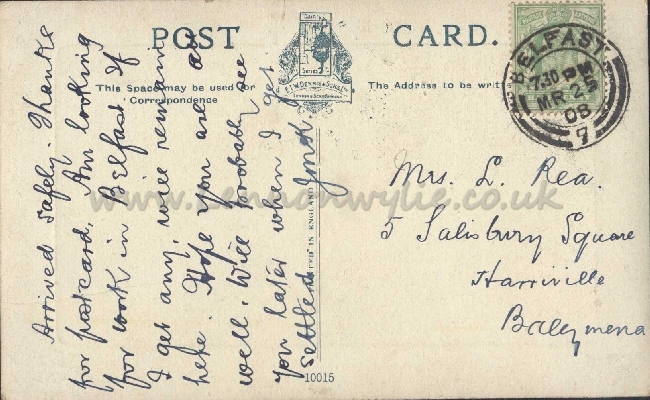 POST CARD.
This Space may be used for
Correspondence
The Address to be writ
BELFAST
7.30 PM
MR 25
08
7
Arrived safely. Thanks
for postcard. Am looking
for work in Belfast. If
I get any, will remain
here. Hope you are all
well. Will probably see
you later when I get
settled.
Mrs. L. Rea.
5 Salisbury Square
Harriville
Ballymena
IN ENGLAND
10015
www.lennonwylie.co.uk